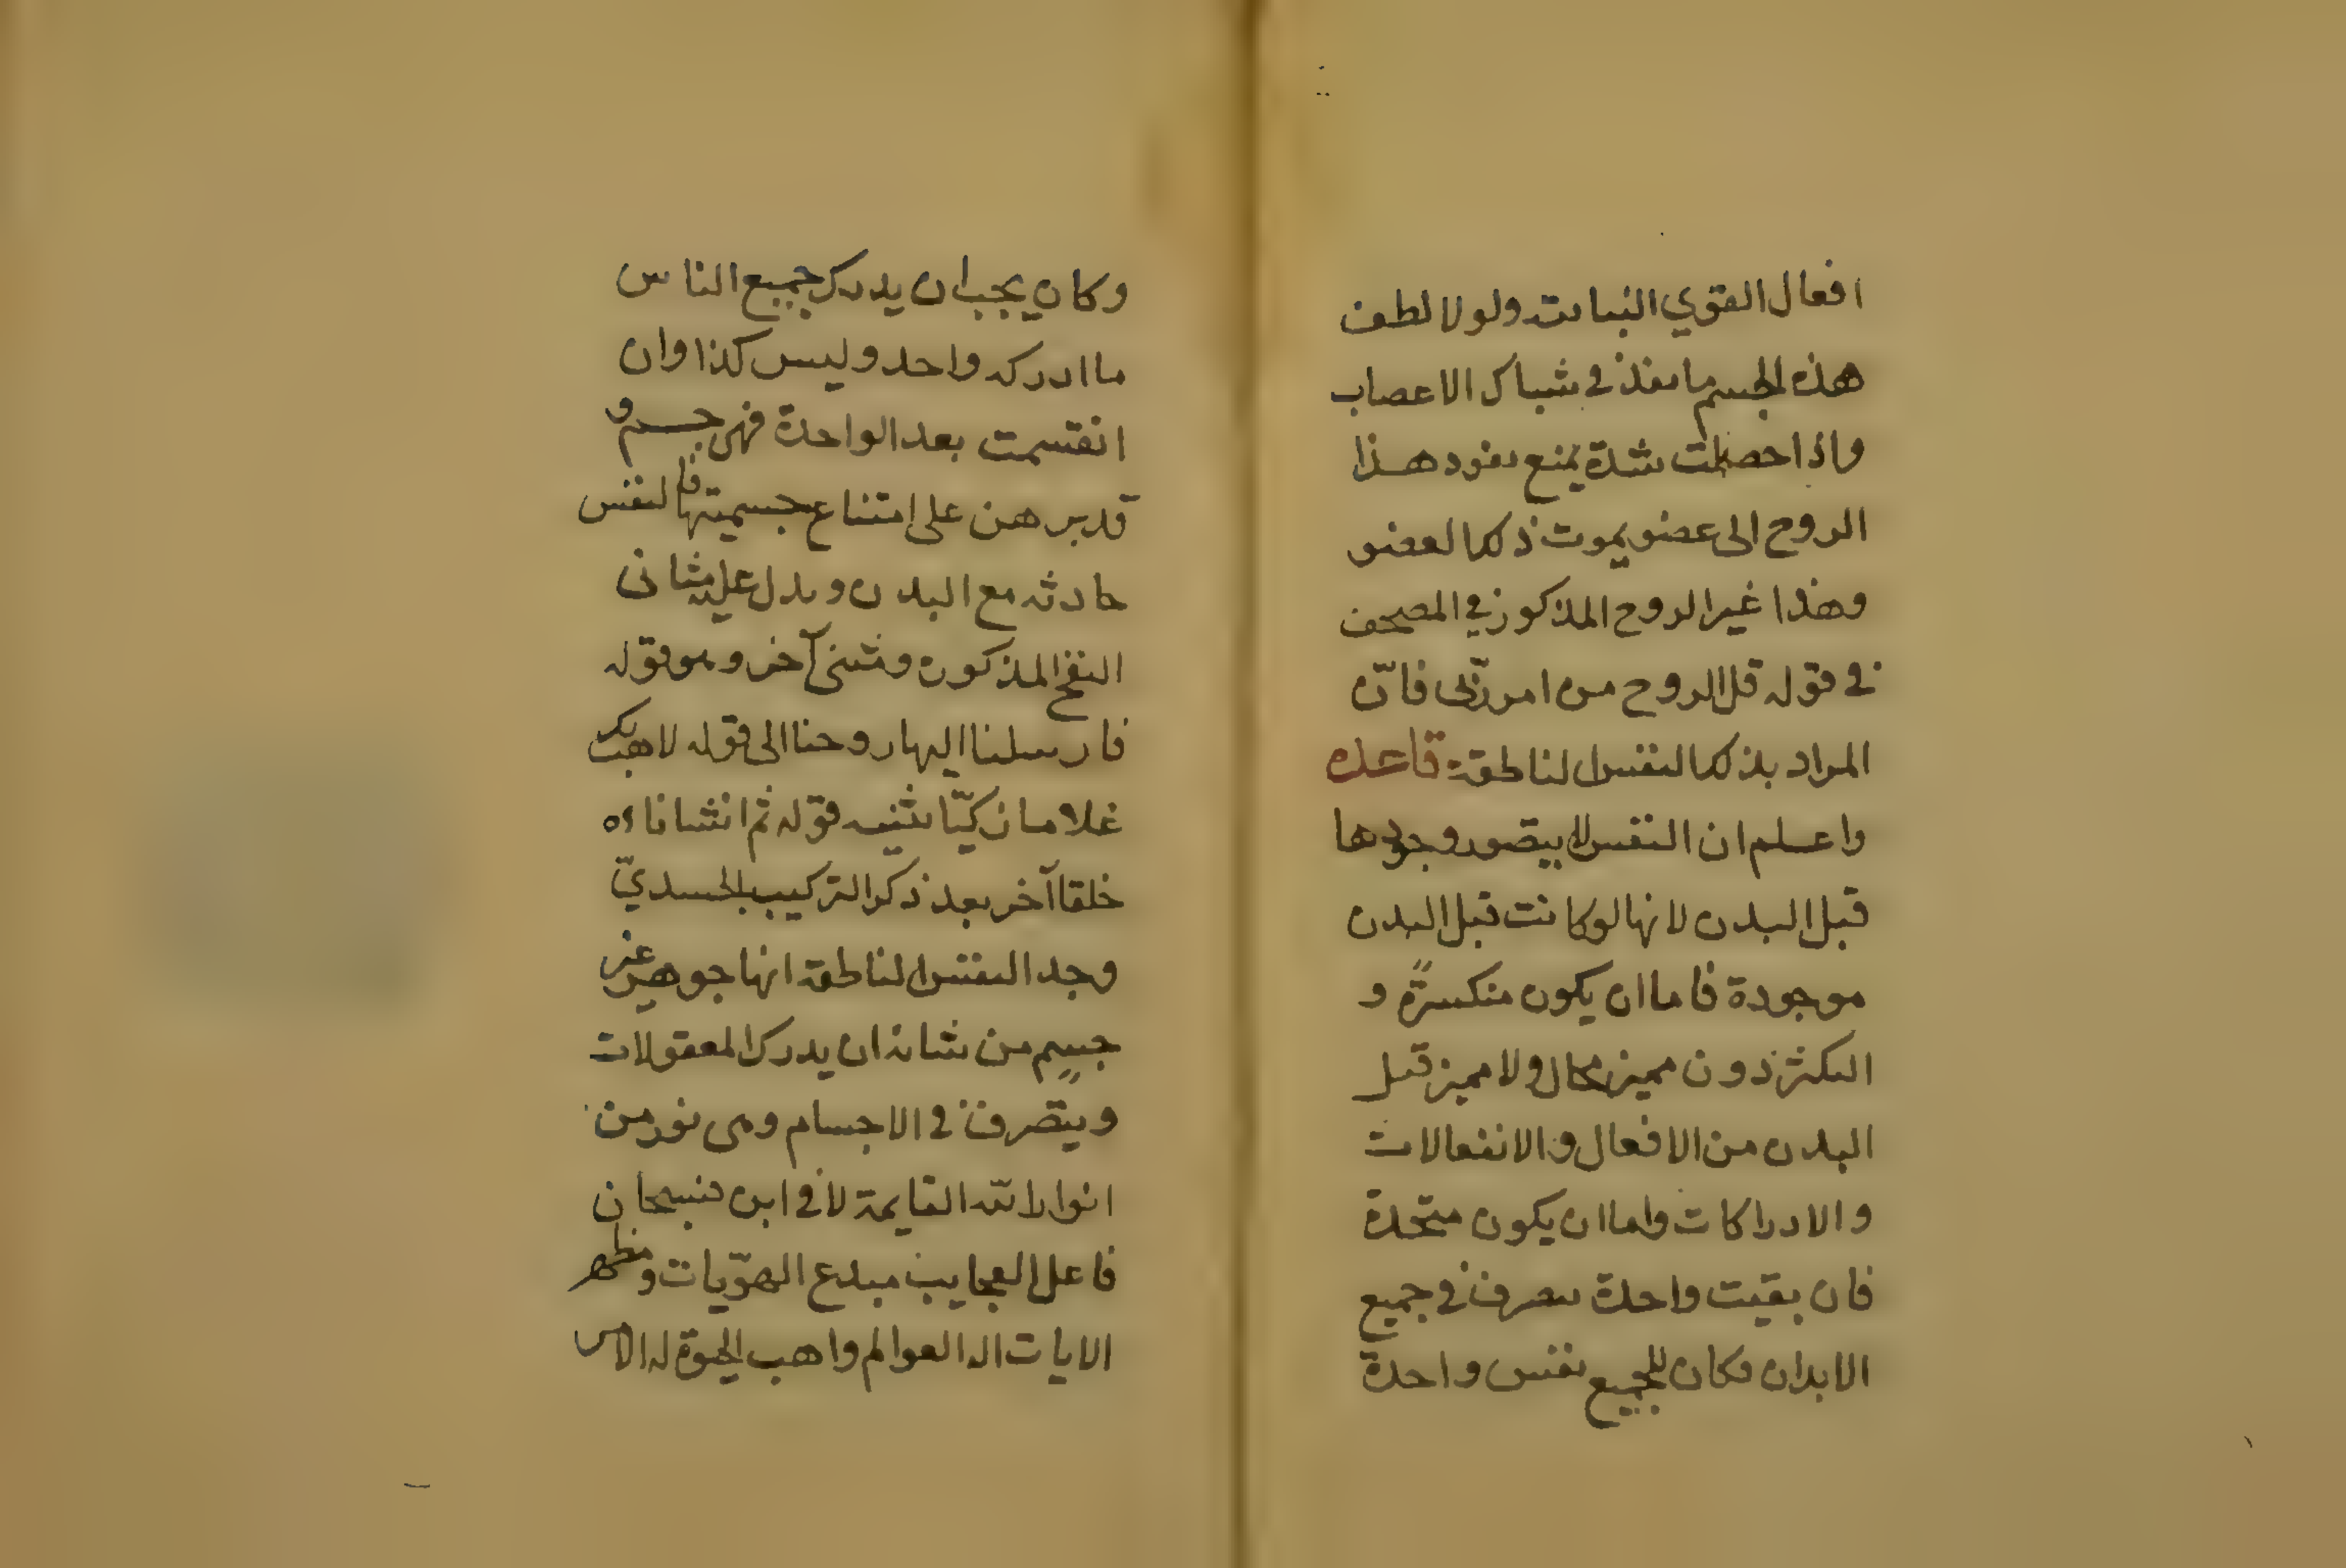 افعال القوي النباته ولولا لطف
هذه الجسم ما نفذ في شباك الاعصاب
واذا حصلت شدة يمنع نفود هذا
الروح الى عضو يموت ذلك العضو
وهذا غير الروح المذكور في المصحف
في قوله قل الروح من امر ربّى فانّ
المراد بذلك النفس الناطقة قاعده
واعلم ان النفس لا يتصور وجودها
قبل البدن لانها لو كانت قبل البدن
موجودة فاما ان يكون متكثرة و
التكثر دون مميز محال ولا مميز قبل
البدن من الافعال والانفعالات
والادراكات واما ان يكون متحدة
فان بقيت واحدة تتصرف في جميع
الابدان فكان للجميع نفس واحدة
وكان يجب ان يدرك جميع الناس
ما ادركه واحد وليس كذا وان
انقسمت بعد الواحدة فهى جسم و
قد برهن على امتناع جسميتها فالنفس
حادثه مع البدن ويدل عليه مثانى
النفخ المذكوره ومثنى آخر وهو قوله
فارسلنا اليها روحنا الى قوله لاهب لك
غلاما زكيّا يثنيه قوله ثم انشاناه
خلقا آخر بعد ذكر التركيب الجسديّ
وحد النفس الناطقة انها جوهر غير
جسم من شانه ان يدرك المعقولات
ويتصرف في الاجسام وهى نور من
انوار الله القايمة لا في اين فسبحان
فاعل العجايب مبدع الهوّيات ومظهر
الايات اله العوالم واهب الحيوة له